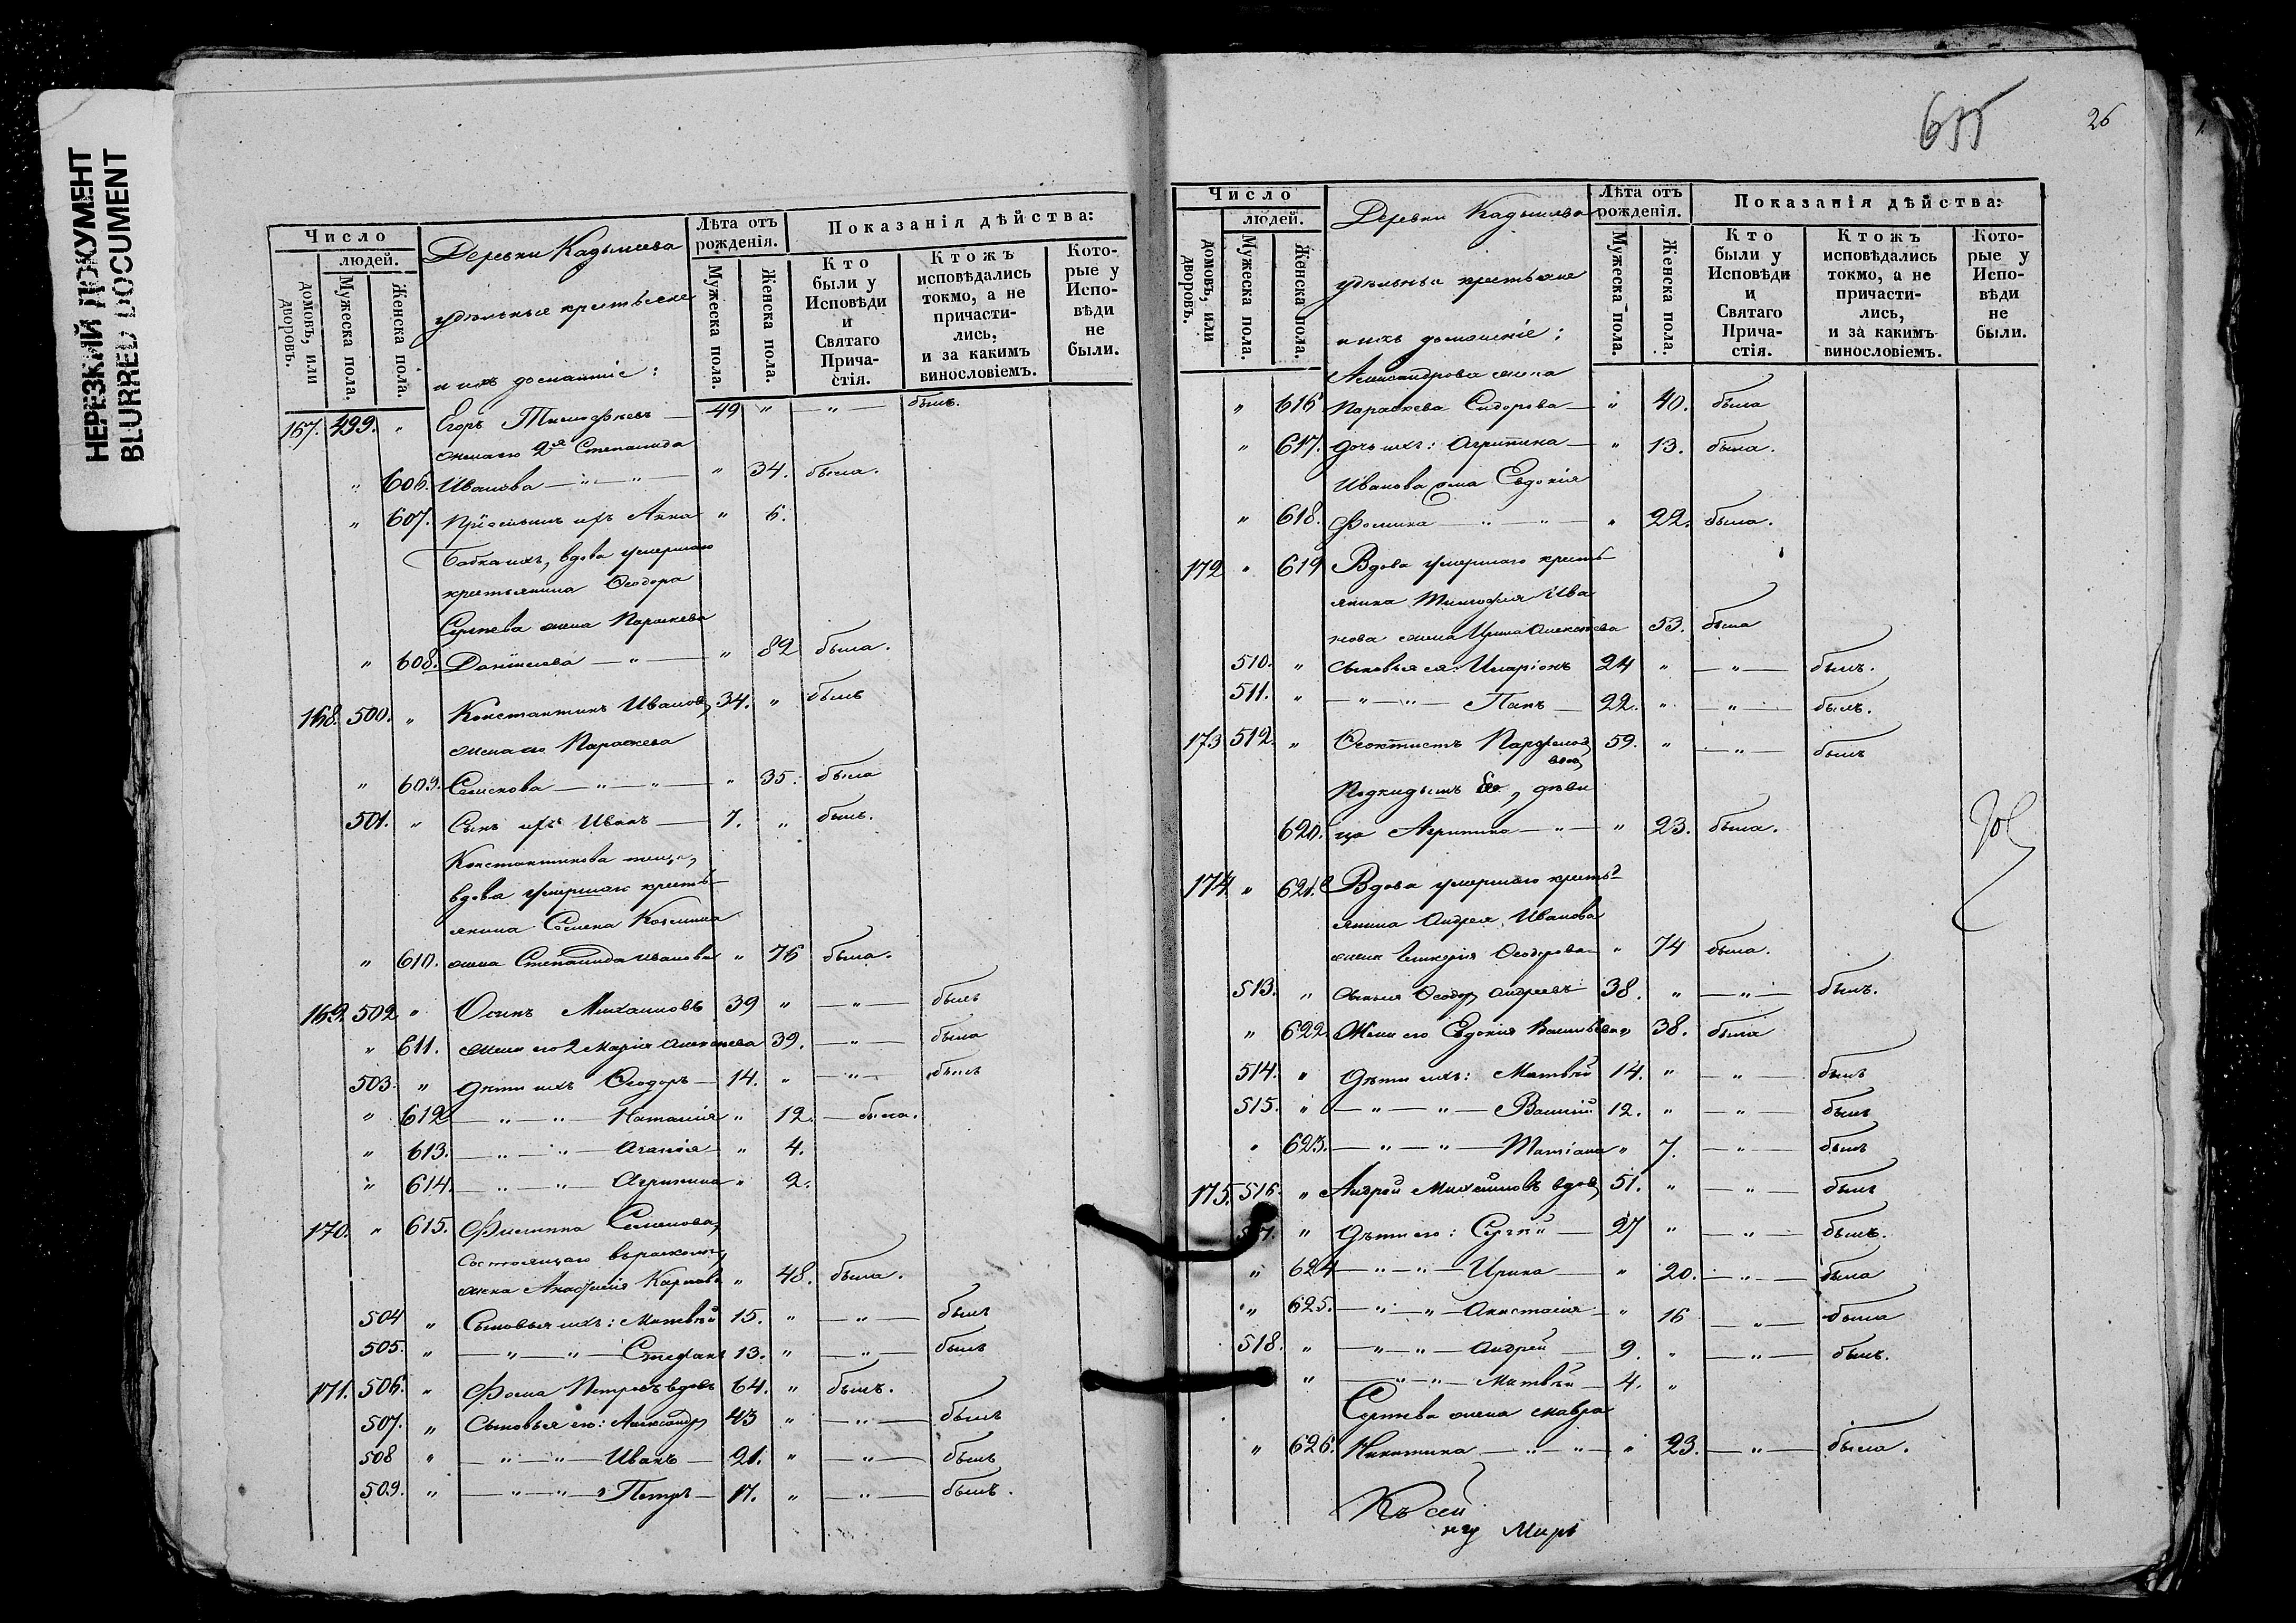 НЕРЕЗКИЙ ДОКУМЕНТ
BLURRED DOCUMENT
Число
людей.
домовъ, или дворовъ.
Мужеска пола.
Женска пола.
Деревни Кадышева
удѣльные крестьяне
и ихъ домашніе:
Лѣта отъ рожденія.
Мужеска пола.
Женска пола.
Показанія дѣйства:
Кто были у Исповѣди и Святаго Прича-стія.
Ктожъ исповѣдались токмо, а не причасти-лись, и за какимъ винословіемъ.
Кото-рые у Испо-вѣди не были.
167. 499. " Егоръ Тимофѣевъ — 49 " — " — былъ.
жена его 2я Степанида
" 606. Иванова — " — " — " 34. была.
" 607. Пріемышъ ихъ Анна " 6.
Бабка ихъ, вдова умершаго
крестьянина Ѳеодора
Сергѣева жена Параскева
" 608. Даніилова — " — " 82 была.
168. 500. " Константинъ Ивановъ 34. " былъ
жена его Параскева
" 609. Семенова — " — " — " 35. была
501. " Сынъ ихъ Иванъ — 7. " былъ.
Константинова теща,
вдова умершаго кресть-
янина Семена Козмина
" 610. жена Степанида Иванова " 76 была.
169. 502 " Осипъ Михаиловъ 39 " — " — былъ
" 611. жена его 2 Марія Алексѣева 39. — " — была
503. " дѣти ихъ Ѳеодоръ — 14. " — " — былъ
" 612 — " — " — Наталія " 12. — была.
" 613. — " — " — Агапія — " 4.
" 614. — " — " — Агрипина " 2.
170. " 615. Филиппа Семенова,
состоящаго въ расколѣ,
жена Анфилія Карпова " 48. была.
504 " Сыновья ихъ: Матвѣй 15. " — " — былъ
505. " — " — " — Стефанъ 13. " — " — былъ
171. 506. " Фома Петровъ вдовъ 64. " былъ.
507. " Сыновья его: Александръ 43 " — " — былъ
508 " — " — " — Иванъ — 21. " — " — былъ
509. " — " — " — Петръ — 17. " — " — былъ.
635
26
Число
людей.
домовъ, или дворовъ.
Мужеска пола.
Женска пола.
Деревни Кадышева
удѣльные крестьяне
и ихъ домашніе:
Лѣта отъ рожденія.
Мужеска пола.
Женска пола.
Показанія дѣйства:
Кто были у Исповѣди и Святаго Прича-стія.
Ктожъ исповѣдались токмо, а не причасти-лись, и за какимъ винословіемъ.
Кото-рые у Испо-вѣди не были.
Александрова жена
" 616 Параскева Сидорова — " 40. была
" 617. дочь ихъ: Агрипина — " 13. была.
Иванова жена Евдокія
" 618. Фомина — " — " — " 22. была.
172 " 619 Вдова умершаго кресть-
янина Тимофея Ива
нова жена Ирина Алексѣева 53. была
510. " Сыновья ея: Иларіонъ 24 " — " — былъ.
511. " — " — " — Панъ — 22. " — " — былъ.
173 512. " Ѳеоктистъ Парфенов 59. " — " — былъ
Подкидышъ его, дѣви
620. ца Агрипина — " — " 23. была.
174. " 621. Вдова умершаго кресть-
янина Андрея Иванова
жена Гликерія Ѳеодорова " 74 была.
513. " Сынъ ея Ѳеодоръ Андреевъ 38. " — " — былъ.
" 622 Жена его Евдокія Васильева 38. была
514. " Дѣти ихъ: Матвѣй 14. " — " — былъ
515. " — " — " — Василій 12. " — " — былъ
" 623. — " — " — Татіана " 7. — " — былъ
175. 516. " Андрей Михаиловъ вдов 51. " — " — былъ
517. " Дѣти его: Сергѣй — 27 " — " — былъ.
" 624 — " — " — Ирина — " 20. — " — была
" 625. — " — " — Анастасія — " 16 — " — была
518. " — " — " — Андрей — 9. " — " — былъ.
" — " — " — Матвѣй — 4. "
Сергѣева жена Мавра
" 626. Никитина — " — " — " 23. — " — была.
Къ сей